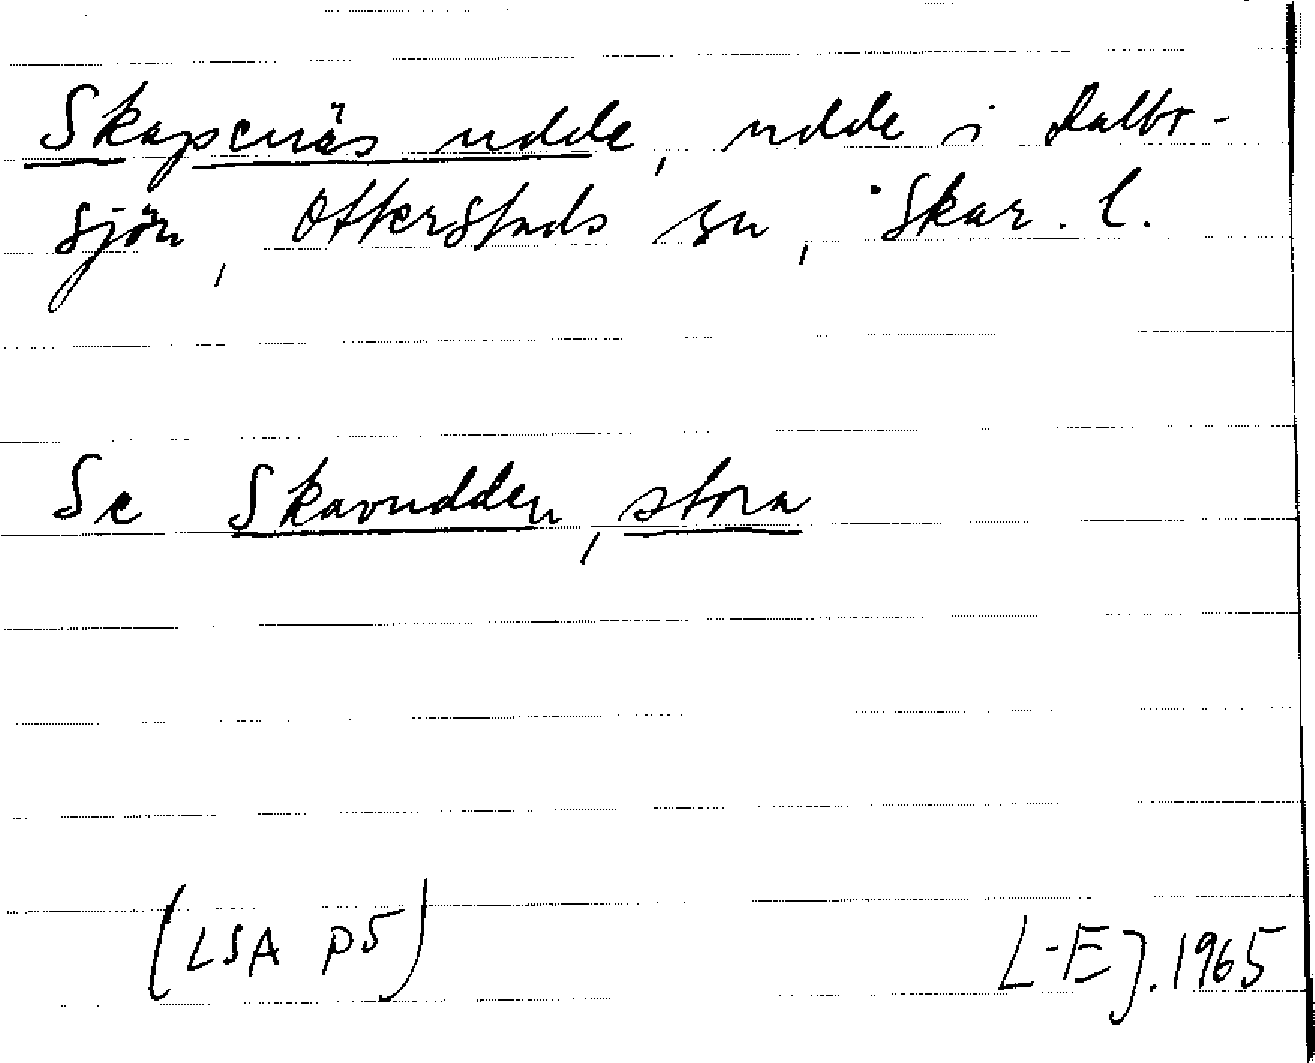 Skapsenäs udde, udde i Dalbo-
sjön, Otterstads sn, Skar. l.
Se Skavudden, stora
(LSA P5)
L-E J. 1965